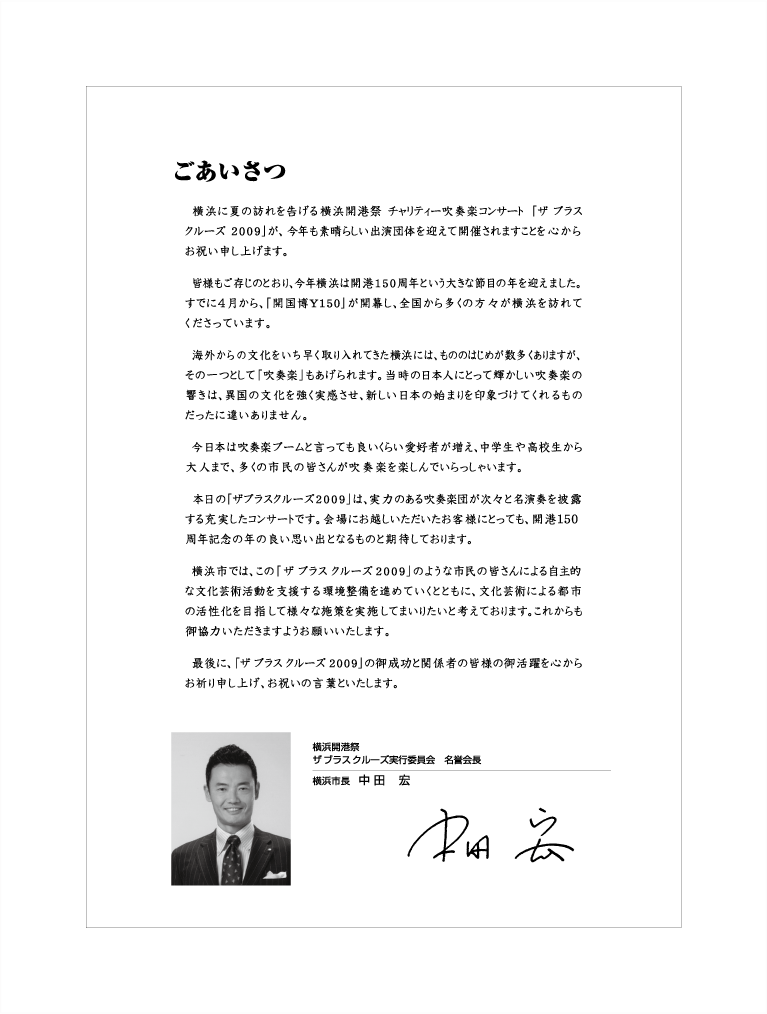 ごあいさつ
横浜に夏の訪れを告げる横浜開港祭 チャリティー吹奏楽コンサート 「ザ ブラス
クルーズ 2009」が、今年も素晴らしい出演団体を迎えて開催されますことを心から
お祝い申し上げます。
皆様もご存じのとおり、今年横浜は開港150周年という大きな節目の年を迎えました。
すでに4月から、「開国博Y150」が開幕し、全国から多くの方々が横浜を訪れて
くださっています。
海外からの文化をいち早く取り入れてきた横浜には、もののはじめが数多くありますが、
その一つとして「吹奏楽」もあげられます。当時の日本人にとって輝かしい吹奏楽の
響きは、異国の文化を強く実感させ、新しい日本の始まりを印象づけてくれるもの
だったに違いありません。
今日本は吹奏楽ブームと言っても良いくらい愛好者が増え、中学生や高校生から
大人まで、多くの市民の皆さんが吹奏楽を楽しんでいらっしゃいます。
本日の「ザブラスクルーズ2009」は、実力のある吹奏楽団が次々と名演奏を披露
する充実したコンサートです。会場にお越しいただいたお客様にとっても、開港150
周年記念の年の良い思い出となるものと期待しております。
横浜市では、この「ザ ブラス クルーズ 2009」のような市民の皆さんによる自主的
な文化芸術活動を支援する環境整備を進めていくとともに、文化芸術による都市
の活性化を目指して様々な施策を実施してまいりたいと考えております。これからも
御協力いただきますようお願いいたします。
最後に、「ザ ブラス クルーズ 2009」の御成功と関係者の皆様の御活躍を心から
お祈り申し上げ、お祝いの言葉といたします。
横浜開港祭
ザ ブラス クルーズ実行委員会 名誉会長
横浜市長 中田 宏
中田 宏